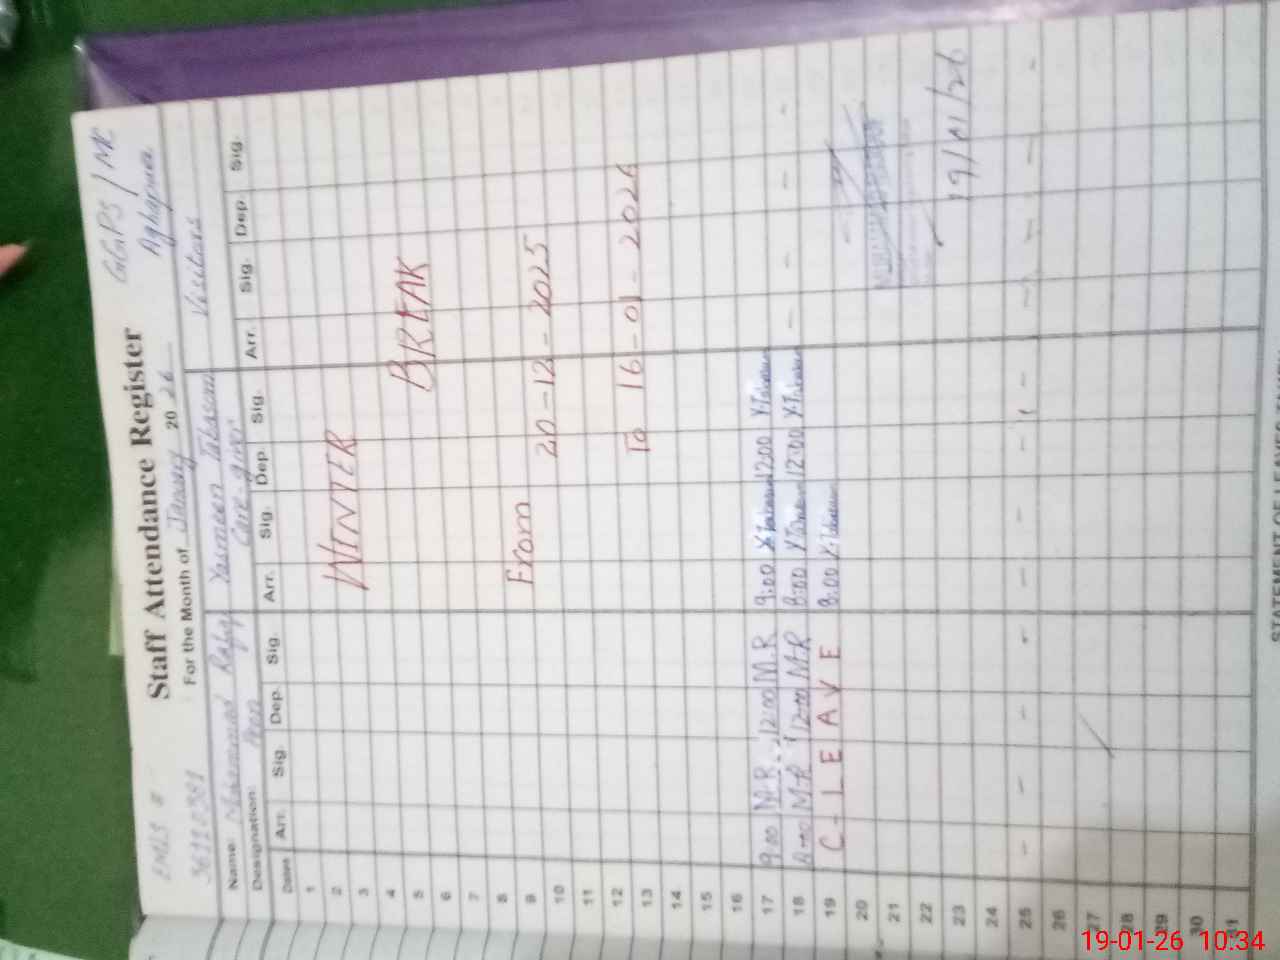 EMIS #
GGPS / MC
Staff Attendance Register
Aghapura
For the Month of January 2026
Name: Mohammad Rafiq Yasmeen Tabassum Visitors
Designation: Peon Care-giver
Dates Arr. Sig. Dep. Sig. Arr. Sig. Dep. Sig. Arr. Sig. Dep. Sig.
1
2 WINTER
3
4
5 BREAK
6
7
8
9 From 20-12-2025
10
11
12
13 To 16-01-2026
14
15
16
17 9:00 M-R 12:00 M.R 9:00 12:00
18 8:00 M-R 12:00 M-R 8:00 12:00
19 C-LEAVE 8:00
20
21
22
23 19/01/26
24
25
26
27
28
29
30
31
19-01-26 10:34